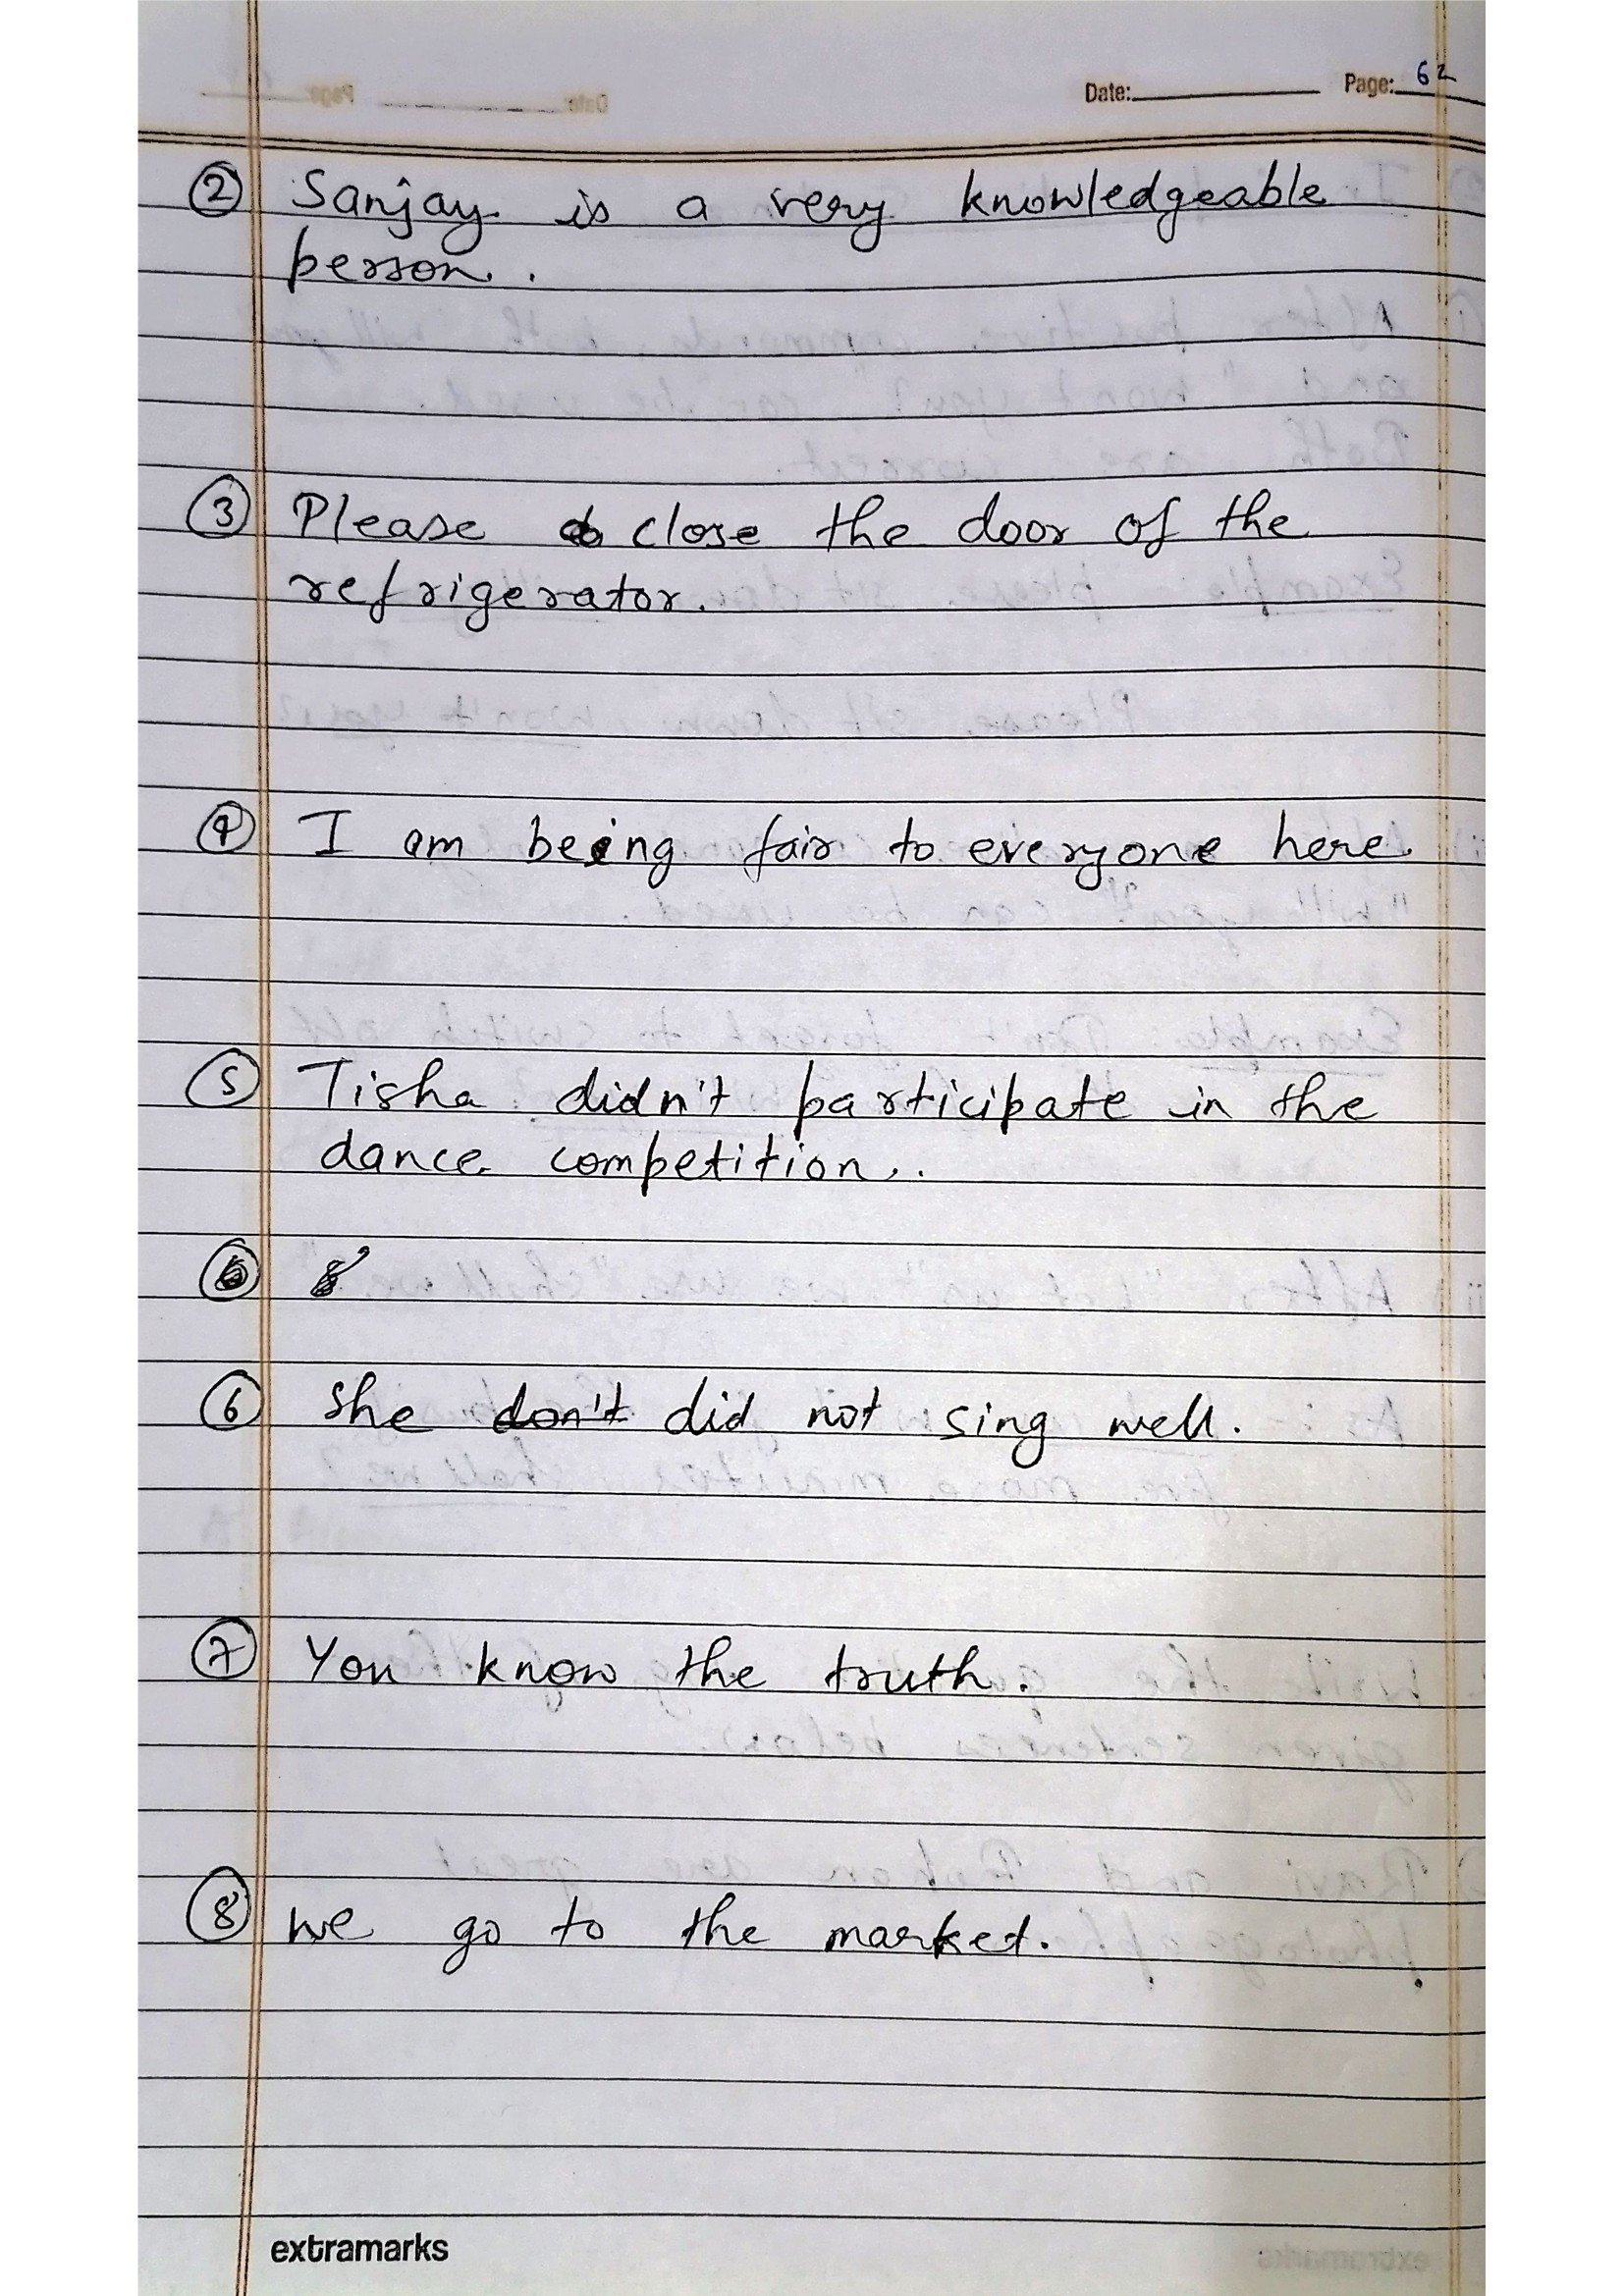 Date: Page: 62
② Sanjay is a very knowledgeable
person.
③ Please close the door of the
refrigerator.
④ I am being fair to everyone here.
⑤ Tisha didn't participate in the
dance competition.
⑥ She don't did not sing well.
⑦ You know the truth.
⑧ we go to the market.
extramarks